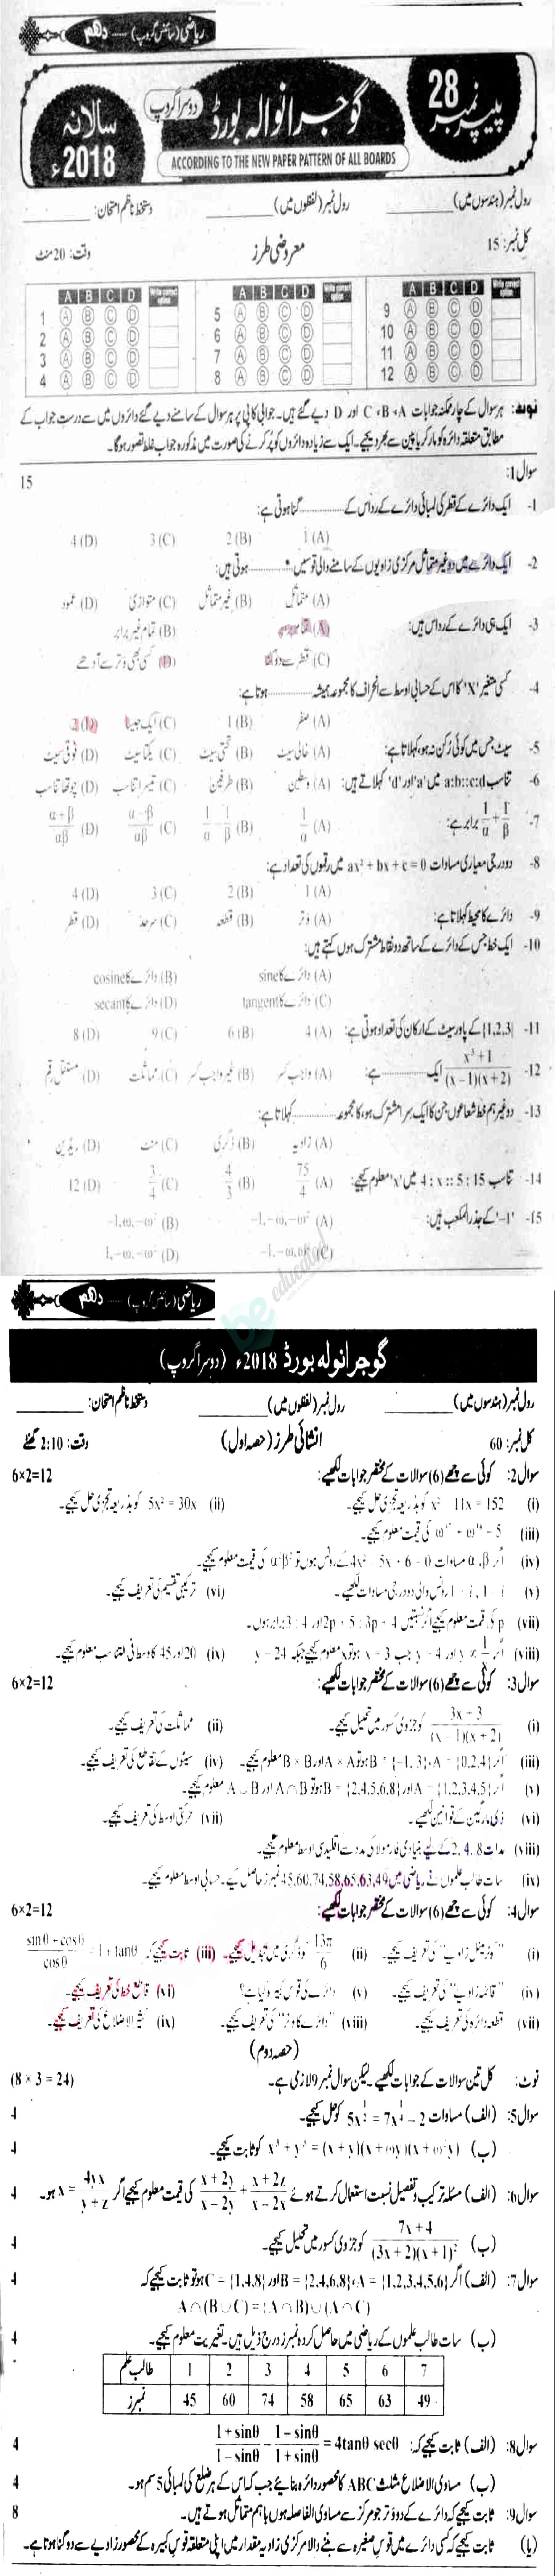 ریاضی (سائنس گروپ) ..... دہم
پیپر نمبر 28
گوجرانوالہ بورڈ
دوسرا گروپ
سالانہ 2018ء
ACCORDING TO THE NEW PAPER PATTERN OF ALL BOARDS
رول نمبر (ہندسوں میں) ________ رول نمبر (لفظوں میں) ________ دستخط ناظم امتحان: ________
کل نمبر: 15 معروضی طرز وقت: 20 منٹ
A B C D Write correct option A B C D Write correct option A B C D Write correct option
1 A B C D 5 A B C D 9 A B C D
2 A B C D 6 A B C D 10 A B C D
3 A B C D 7 A B C D 11 A B C D
4 A B C D 8 A B C D 12 A B C D
نوٹ: ہر سوال کے چار ممکنہ جوابات A، B، C اور D دیے گئے ہیں۔ جوابی کاپی پر ہر سوال کے سامنے دیے گئے دائروں میں سے درست جواب کے
مطابق متعلقہ دائرہ کو مارکر یا پین سے بھر دیجیے۔ ایک سے زیادہ دائروں کو پُر کرنے کی صورت میں مذکورہ جواب غلط تصور ہوگا۔
سوال1: 15
1- ایک دائرے کے قطر کی لمبائی دائرے کے رداس کے ............ گنا ہوتی ہے:
(A) 1 (B) 2 (C) 3 (D) 4
2- ایک دائرے میں دو غیر متماثل مرکزی زاویوں کے سامنے والی قوسیں ............ ہوتی ہیں:
(A) متماثل (B) غیر متماثل (C) متوازی (D) عمود
3- ایک ہی دائرے کے رداس ہیں:
(A) (B) تمام غیر برابر
(C) قطر سے دوگنا (D) کسی بھی وتر سے آدھے
4- کسی متغیر 'X' کا اس کے حسابی اوسط سے انحراف کا مجموعہ ہمیشہ ............ ہوتا ہے:
(A) صفر (B) 1 (C) ایک جیسا (D)
5- سیٹ جس میں کوئی رُکن نہ ہو، کہلاتا ہے:
(A) خالی سیٹ (B) تحتی سیٹ (C) یکتا سیٹ (D) فوقی سیٹ
6- تناسب a:b::c:d میں 'a' اور 'd' کہلاتے ہیں: (A) وسطین (B) طرفین (C) تیسرا تناسب (D) چوتھا تناسب
7- 1/α + 1/β برابر ہے: (A) 1/α (B) 1/α - 1/β (C) (α-β)/αβ (D) (α+β)/αβ
8- دو درجی معیاری مساوات ax² + bx + c = 0 میں رقوں کی تعداد ہے:
(A) 1 (B) 2 (C) 3 (D) 4
9- دائرے کا محیط کہلاتا ہے: (A) وتر (B) قطعہ (C) سرحد (D) قطر
10- ایک خط جس کے دائرے کے ساتھ دو نقاط مشترک ہوں کہتے ہیں:
(A) دائرے کا sine (B) دائرے کا cosine
(C) دائرے کا tangent (D) دائرے کا secant
11- {1,2,3} کے پاور سیٹ کے ارکان کی تعداد ہوتی ہے: (A) 4 (B) 6 (C) 9 (D) 8
12- (x³+1)/((x-1)(x+2)) ایک ............ ہے: (A) واجب کسر (B) غیر واجب کسر (C) مماثلت (D) مستقل رقم
13- دو غیر ہم خط شعاعوں جن کا ایک سرا مشترک ہو، کا مجموعہ ............ کہلاتا ہے:
(A) زاویہ (B) ڈگری (C) منٹ (D) ریڈین
14- تناسب 4 : x :: 5 : 15 میں 'x' معلوم کیجیے: (A) 75/4 (B) 4/3 (C) 3/4 (D) 12
15- '-1' کے جذر المکعب ہیں: (A) -1,-ω,-ω² (B) -1,ω,-ω²
(C) -1,-ω,ω² (D) 1,-ω,-ω²
be educated
ریاضی (سائنس گروپ) ..... دہم
گوجرانوالہ بورڈ 2018ء (دوسرا گروپ)
رول نمبر (ہندسوں میں) ________ رول نمبر (لفظوں میں) ________ دستخط ناظم امتحان: ________
کل نمبر: 60 انشائی طرز (حصہ اول) وقت: 2:10 گھنٹے
سوال2: کوئی سے چھے (6) سوالات کے مختصر جوابات لکھیے: 6×2=12
(i) x² 11x = 152 کو بذریعہ تجزی حل کیجیے۔ (ii) 5x² = 30x کو بذریعہ تجزی حل کیجیے۔
(iii) کی قیمت معلوم کیجیے۔
(iv) اگر α, β مساوات 4x² 5x + 6 = 0 کے روٹس ہوں تو α²β² کی قیمت معلوم کیجیے۔
(v) روٹس والی دو درجی مساوات لکھیے۔ (vi) ترکیبی تقسیم کی تعریف کیجیے۔
(vii) p کی قیمت معلوم کیجیے اگر نسبتیں 2p + 5 : 3p + 4 اور 3 : 4 برابر ہوں۔
(viii) اگر y ∝ 1/x اور y = 4 جب x = 3 ہو تو x معلوم کیجیے جبکہ y = 24 (ix) 20 اور 45 کا وسط فی التناسب معلوم کیجیے۔
سوال3: کوئی سے چھے (6) سوالات کے مختصر جوابات لکھیے: 6×2=12
(i) کو جزوی کسور میں تحلیل کیجیے۔ (ii) مماثلت کی تعریف کیجیے۔
(iii) اگر A = {0,2,4}، B = {-1, 3} ہو تو A × A اور B × B معلوم کیجیے۔ (iv) سیٹوں کے تقاطع کی تعریف کیجیے۔
(v) اگر A = {1,2,3,4,5} اور B = {2,4,6,8} ہو تو A ∩ B اور A ∪ B معلوم کیجیے۔
(vi) ڈی مارگن کے قوانین لکھیے۔ (vii) حرکی اوسط کی تعریف کیجیے۔
(viii) مدات 2, 4, 8 کے لیے بنیادی فارمولا کی مدد سے اقلیدی اوسط معلوم کیجیے۔
(ix) سات طالب علموں نے ریاضی میں 45,60,74,58,65,63,49 نمبرز حاصل کیے۔ حسابی اوسط معلوم کیجیے۔
سوال4: کوئی سے چھے (6) سوالات کے مختصر جوابات لکھیے: 6×2=12
(i) "کوٹرمینل زاویہ" کی تعریف کیجیے۔ (ii) 13π/6 کو ڈگری میں تبدیل کیجیے۔ (iii) ثابت کیجیے کہ (sinθ + cosθ)/cosθ = 1 + tanθ
(iv) "قائمہ زاویہ" کی تعریف کیجیے۔ (v) دائرے کی قوس کبیرہ کیا ہے؟ (vi) قاطع خط کی تعریف کیجیے۔
(vii) قطعہ دائرہ کی تعریف کیجیے۔ (viii) "دائرے کا وتر" کی تعریف کیجیے۔ (ix) کثیر الاضلاع کی تعریف کیجیے۔
(حصہ دوم)
نوٹ: کل تین سوالات کے جوابات لکھیے۔ لیکن سوال نمبر 9 لازمی ہے۔ (8 × 3 = 24)
سوال5: (الف) مساوات 5x^½ = 7x^¼ - 2 کو حل کیجیے۔ 4
(ب) x³ + y³ = (x + y)(x + ωy)(x + ω²y) کو ثابت کیجیے۔ 4
سوال6: (الف) مسئلہ ترکیب و تفصیل نسبت استعمال کرتے ہوئے (x+2y)/(x-2y) + (x+2z)/(x-2z) کی قیمت معلوم کیجیے اگر x = 4yz/(y+z) ہو۔ 4
(ب) (7x+4)/((3x+2)(x+1)²) کو جزوی کسور میں تحلیل کیجیے۔ 4
سوال7: (الف) اگر A = {1,2,3,4,5,6}، B = {2,4,6,8} اور C = {1,4,8} ہو تو ثابت کیجیے کہ 4
A∩(B∪C) = (A∩B)∪(A∩C)
(ب) سات طالب علموں کے ریاضی میں حاصل کردہ نمبرز درج ذیل ہیں۔ تغیریت معلوم کیجیے۔ 4
طالب علم 1 2 3 4 5 6 7
نمبرز 45 60 74 58 65 63 49
سوال8: (الف) ثابت کیجیے کہ: (1+sinθ)/(1-sinθ) - (1-sinθ)/(1+sinθ) = 4tanθ secθ 4
(ب) مساوی الاضلاع مثلث ABC کا محصور دائرہ بنائیے جب کہ اس کے ہر ضلع کی لمبائی 5 سم ہو۔ 4
سوال9: ثابت کیجیے کہ دائرے کے دو وتر جو مرکز سے مساوی الفاصلہ ہوں باہم متماثل ہوتے ہیں۔ 8
(یا) ثابت کیجیے کہ کسی دائرے میں قوس صغیرہ سے بننے والا مرکزی زاویہ مقدار میں اپنی متعلقہ قوس کبیرہ کے محصور زاویے سے دوگنا ہوتا ہے۔